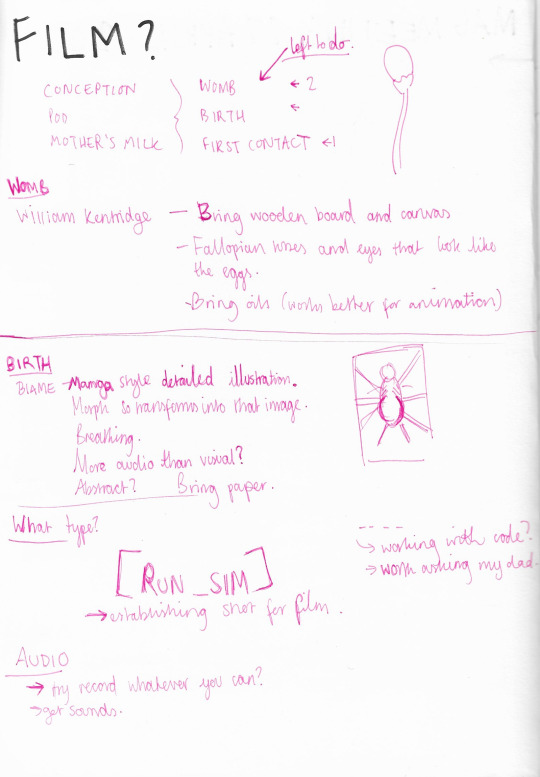 FILM?
left to do.
CONCEPTION
WOMB ← 2
POD
BIRTH ←
MOTHER'S MILK
FIRST CONTACT ← 1
WOMB
William Kentridge — Bring wooden board and canvas
- Fallopian tubes and eyes that look like
the eggs.
- Bring oils (works better for animation)
BIRTH
BLAME - Manga style detailed illustration.
Morph so transforms into that image.
Breathing.
More audio than visual?
Abstract? Bring paper.
What type?
working with code?
→ worth asking my dad.
[RUN_SIM]
→ establishing shot for film.
AUDIO
→ try record whatever you can?
→ get sounds.